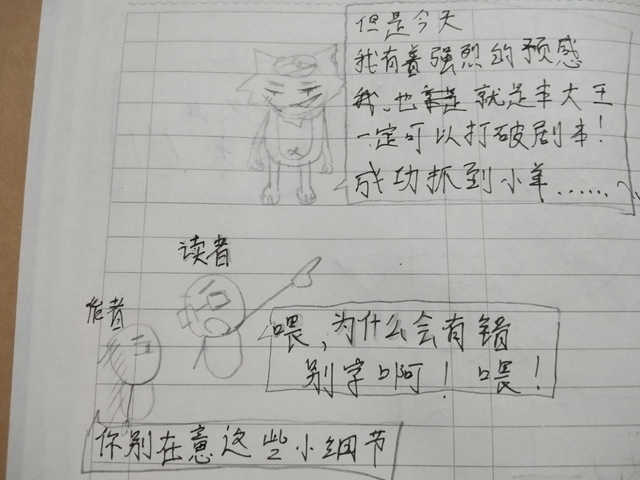 但是今天
我有着强烈的预感
我,也就是本大王
一定可以打破剧本!
成功抓到小羊……
读者
作者
喂,为什么会有错
别字啊!喂!
你别在意这些小细节